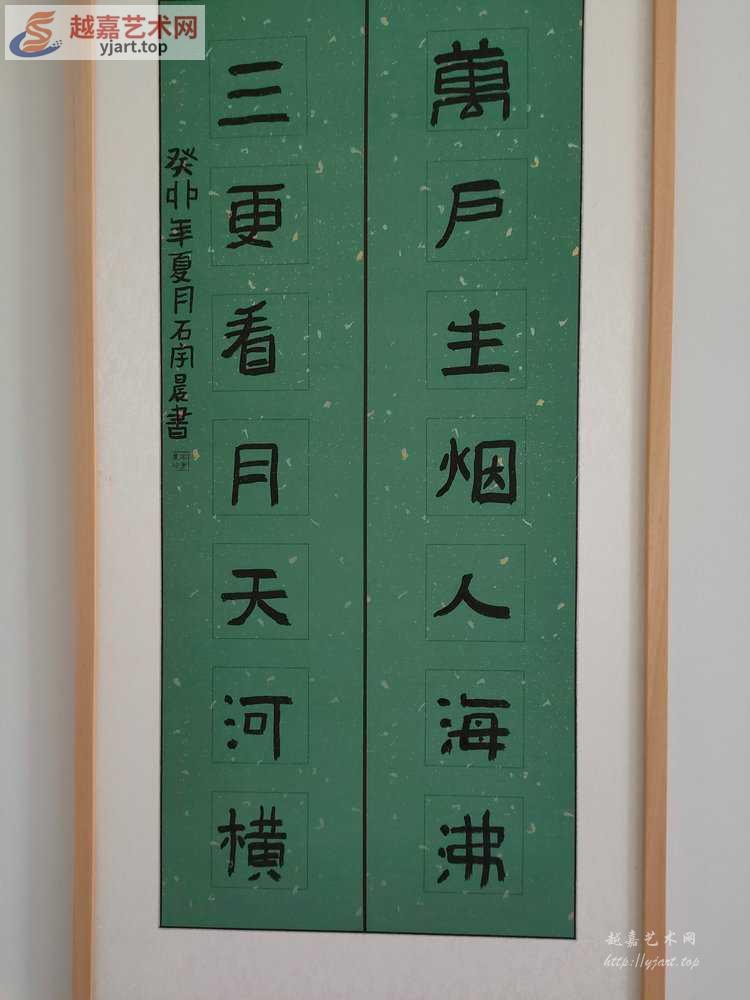 越嘉艺术网
yjart.top
萬戶生烟人海沸
三更看月天河橫
癸卯年夏月石宇晨書
越嘉艺术网
http://yjart.top